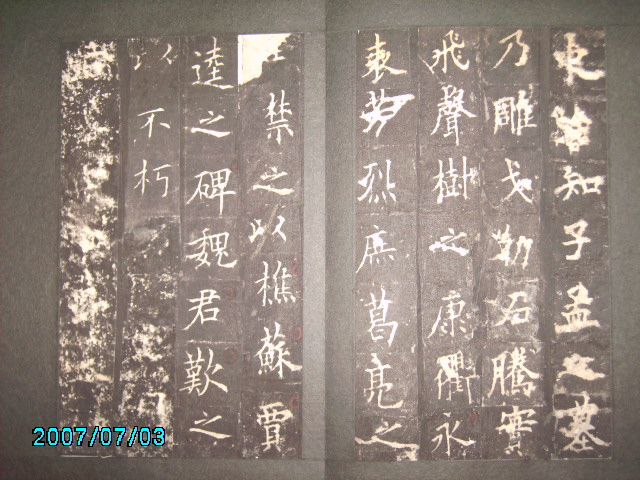 知子孟之墓
乃雕戈勒石騰實
飛聲樹之康衢永
表芳烈庶葛亮之
禁之以樵蘇賈
逵之碑魏君歎之
以不朽
2007/07/03